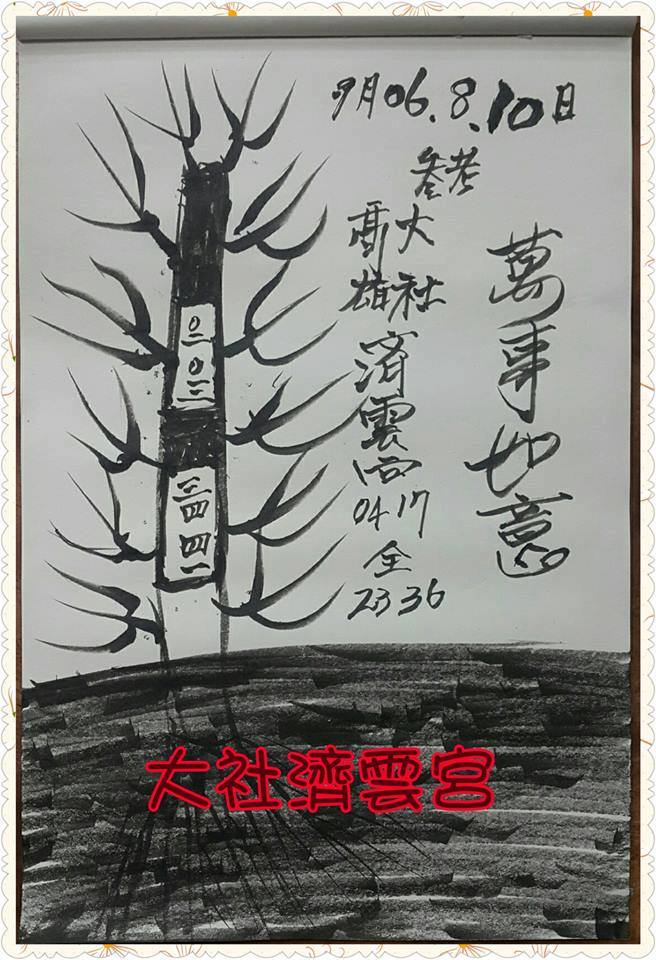 9月06.8.10日
萬事如意
參考
大社
高雄
濟雲宮
04 17
全
23 36
大社濟雲宮